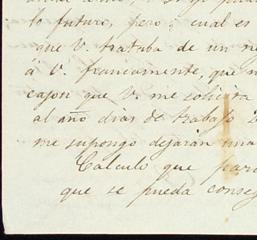 lo futuro, pero ¿cual es
que V. trataba de un ne
á V. francamente, que n
cajon que V. me solicita
al año dias de trabajo
me supongo dejarán una
Calculo que par
que se pueda conse